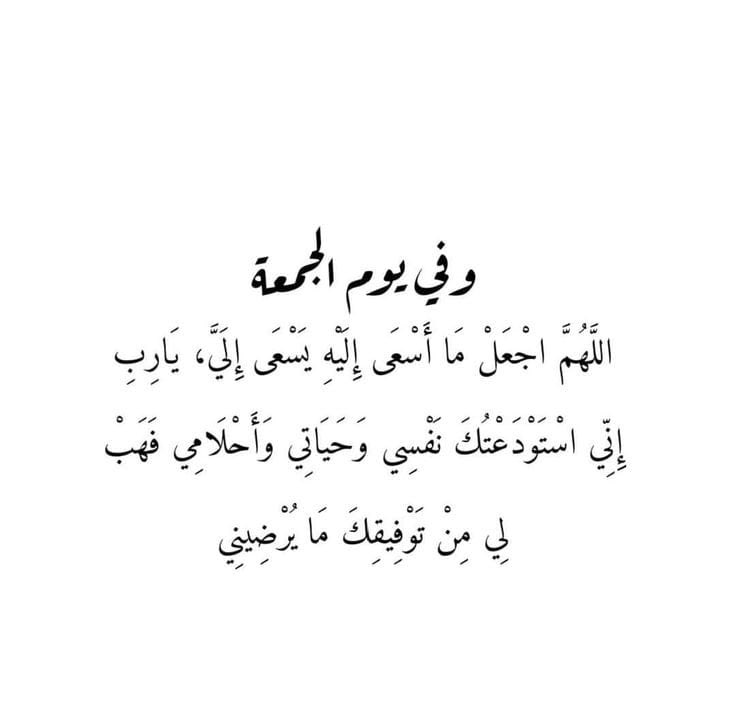 وفي يوم الجمعة
اللَّهُمَّ اجْعَلْ مَا أَسْعَى إِلَيْهِ يَسْعَى إِلَيَّ، يَارِبِ
إِنِّي اسْتَوْدَعْتُكَ نَفْسِي وَحَيَاتِي وَأَحْلَامِي فَهَبْ
لِي مِنْ تَوْفِيقِكَ مَا يُرْضِينِي